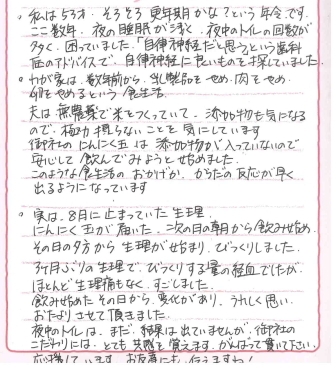 。私は53才。そろそろ更年期かな？という年令です。
ここ数年、夜の睡眠が浅く、夜中のトイレの回数が
多く、困っていました。「自律神経だと思う」という歯科
医のアドバイスで、自律神経に良いものを探していました。
。わが家は、数年前から、乳製品をやめ、肉をやめ、
卵をやめるという食生活。
夫は無農薬で米をつくっていて、添加物も気になる
ので、極力摂らないことを気にしています
御社のにんにく玉は添加物が入っていないので
安心して飲んでみようと始めました。
このような食生活のおかげか、からだの反応が早く
出るようになっています
。実は、8月に止まっていた生理。
にんにく玉が届いた、次の日の朝から飲み始め
その日の夕方から生理が始まり、びっくりしました。
3ヶ月ぶりの生理で、びっくりする量の経血でしたが、
ほとんど生理痛もなく、すごしました。
飲み始めたその日から、変化があり、うれしく思い
おたよりさせて頂きました。
夜中のトイレは、まだ、結果は出ていませんが、御社の
こだわりには、とても共感を覚えます。がんばって貫いて下さい。
応援しています。お友達にも、伝えますね！